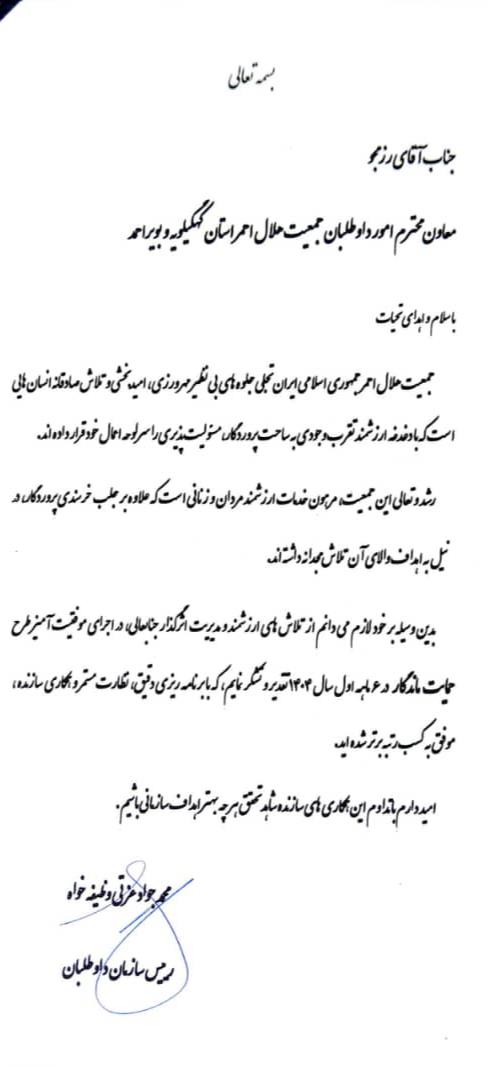 بسمه تعالی
جناب آقای رزمجو
معاون محترم امور داوطلبان جمعیت هلال احمر استان کهگیلویه و بویراحمد
با سلام و اهدای تحیات
جمعیت هلال احمر جمهوری اسلامی ایران تجلی جلوه های بی نظیر مهرورزی، امیدبخشی و تلاش صادقانه انسان هایی
است که با دغدغه ارزشمند تقرب وجودی به ساحت پروردگار، مسئولیت پذیری را سرلوحه اعمال خود قرار داده اند.
رشد و تعالی این جمعیت، مرهون خدمات ارزشمند مردان و زنانی است که علاوه بر جلب خرسندی پروردگار، در
نیل به اهداف والای آن تلاش مجدانه داشته اند.
بدین وسیله بر خود لازم می دانم از تلاش های ارزشمند و مدیریت اثرگذار جنابعالی، در اجرای موفقیت آمیز طرح
حمایت ماندگار در ۶ ماهه اول سال ۱۴۰۴ تقدیر و تشکر نمایم، که با برنامه ریزی دقیق، نظارت مستمر و همکاری سازنده،
موفق به کسب رتبه برتر شده اید.
امید دارم با تداوم این همکاری های سازنده شاهد تحقق هر چه بهتر اهداف سازمانی باشیم.
محمد جواد عزتی وظیفه خواه
رییس سازمان داوطلبان